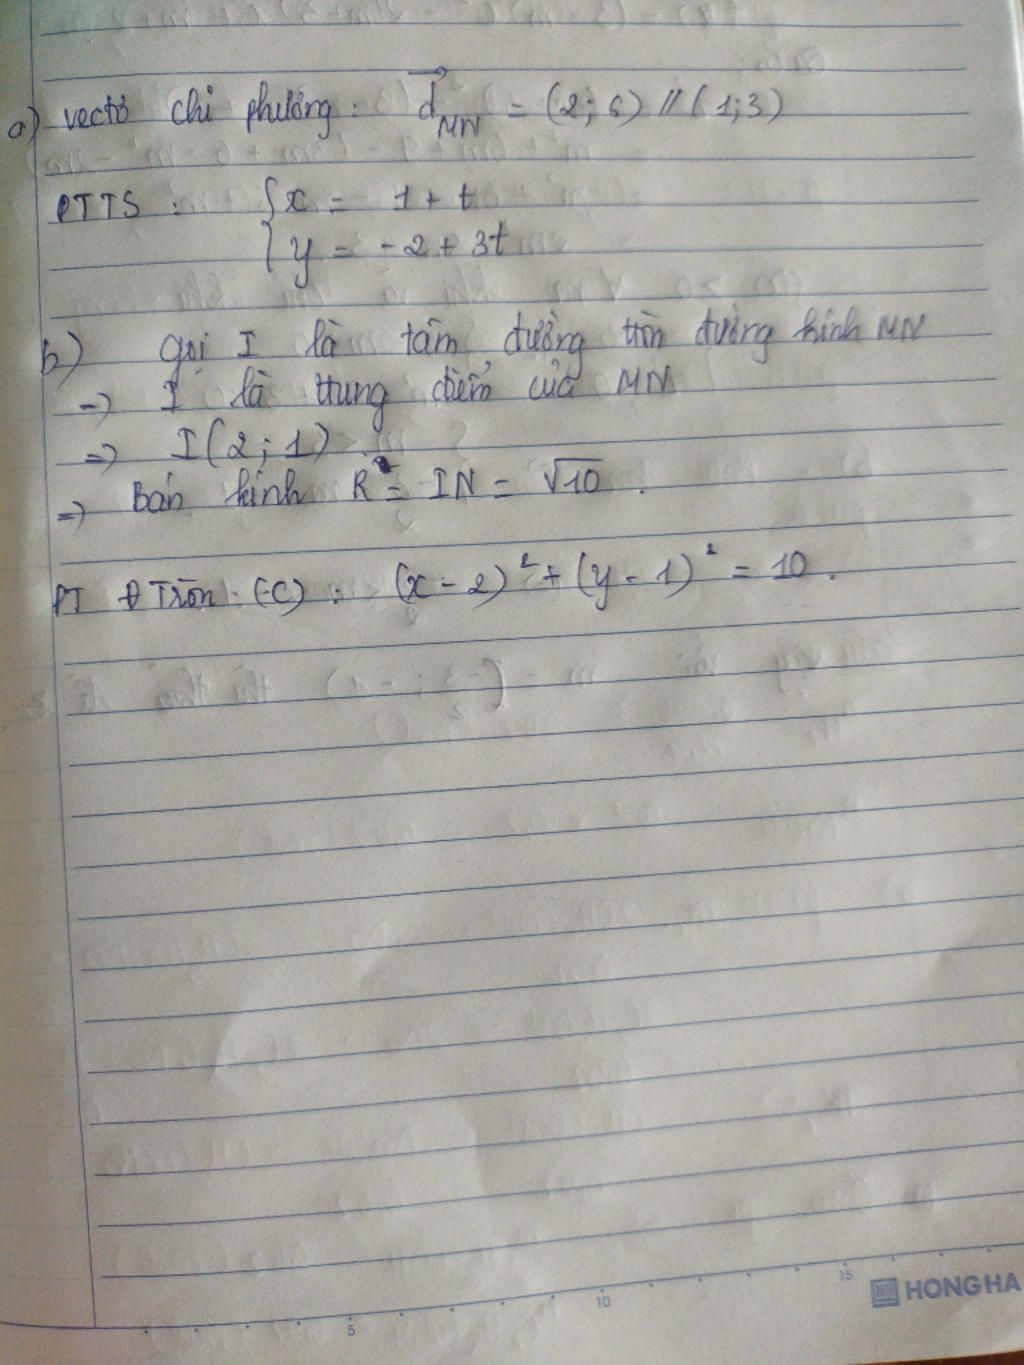 a) vectơ chỉ phương: d⃗_MN = (2; 6) // (1; 3)
PTTS: { x = 1 + t
{ y = -2 + 3t
b) gọi I là tâm đường tròn đường kính MN
=> I là trung điểm của MN
=> I(2; 1)
=> Bán kính R = IN = √10.
PT Đ Tròn (C): (x - 2)² + (y - 1)² = 10.
5
10
15
HONG HA